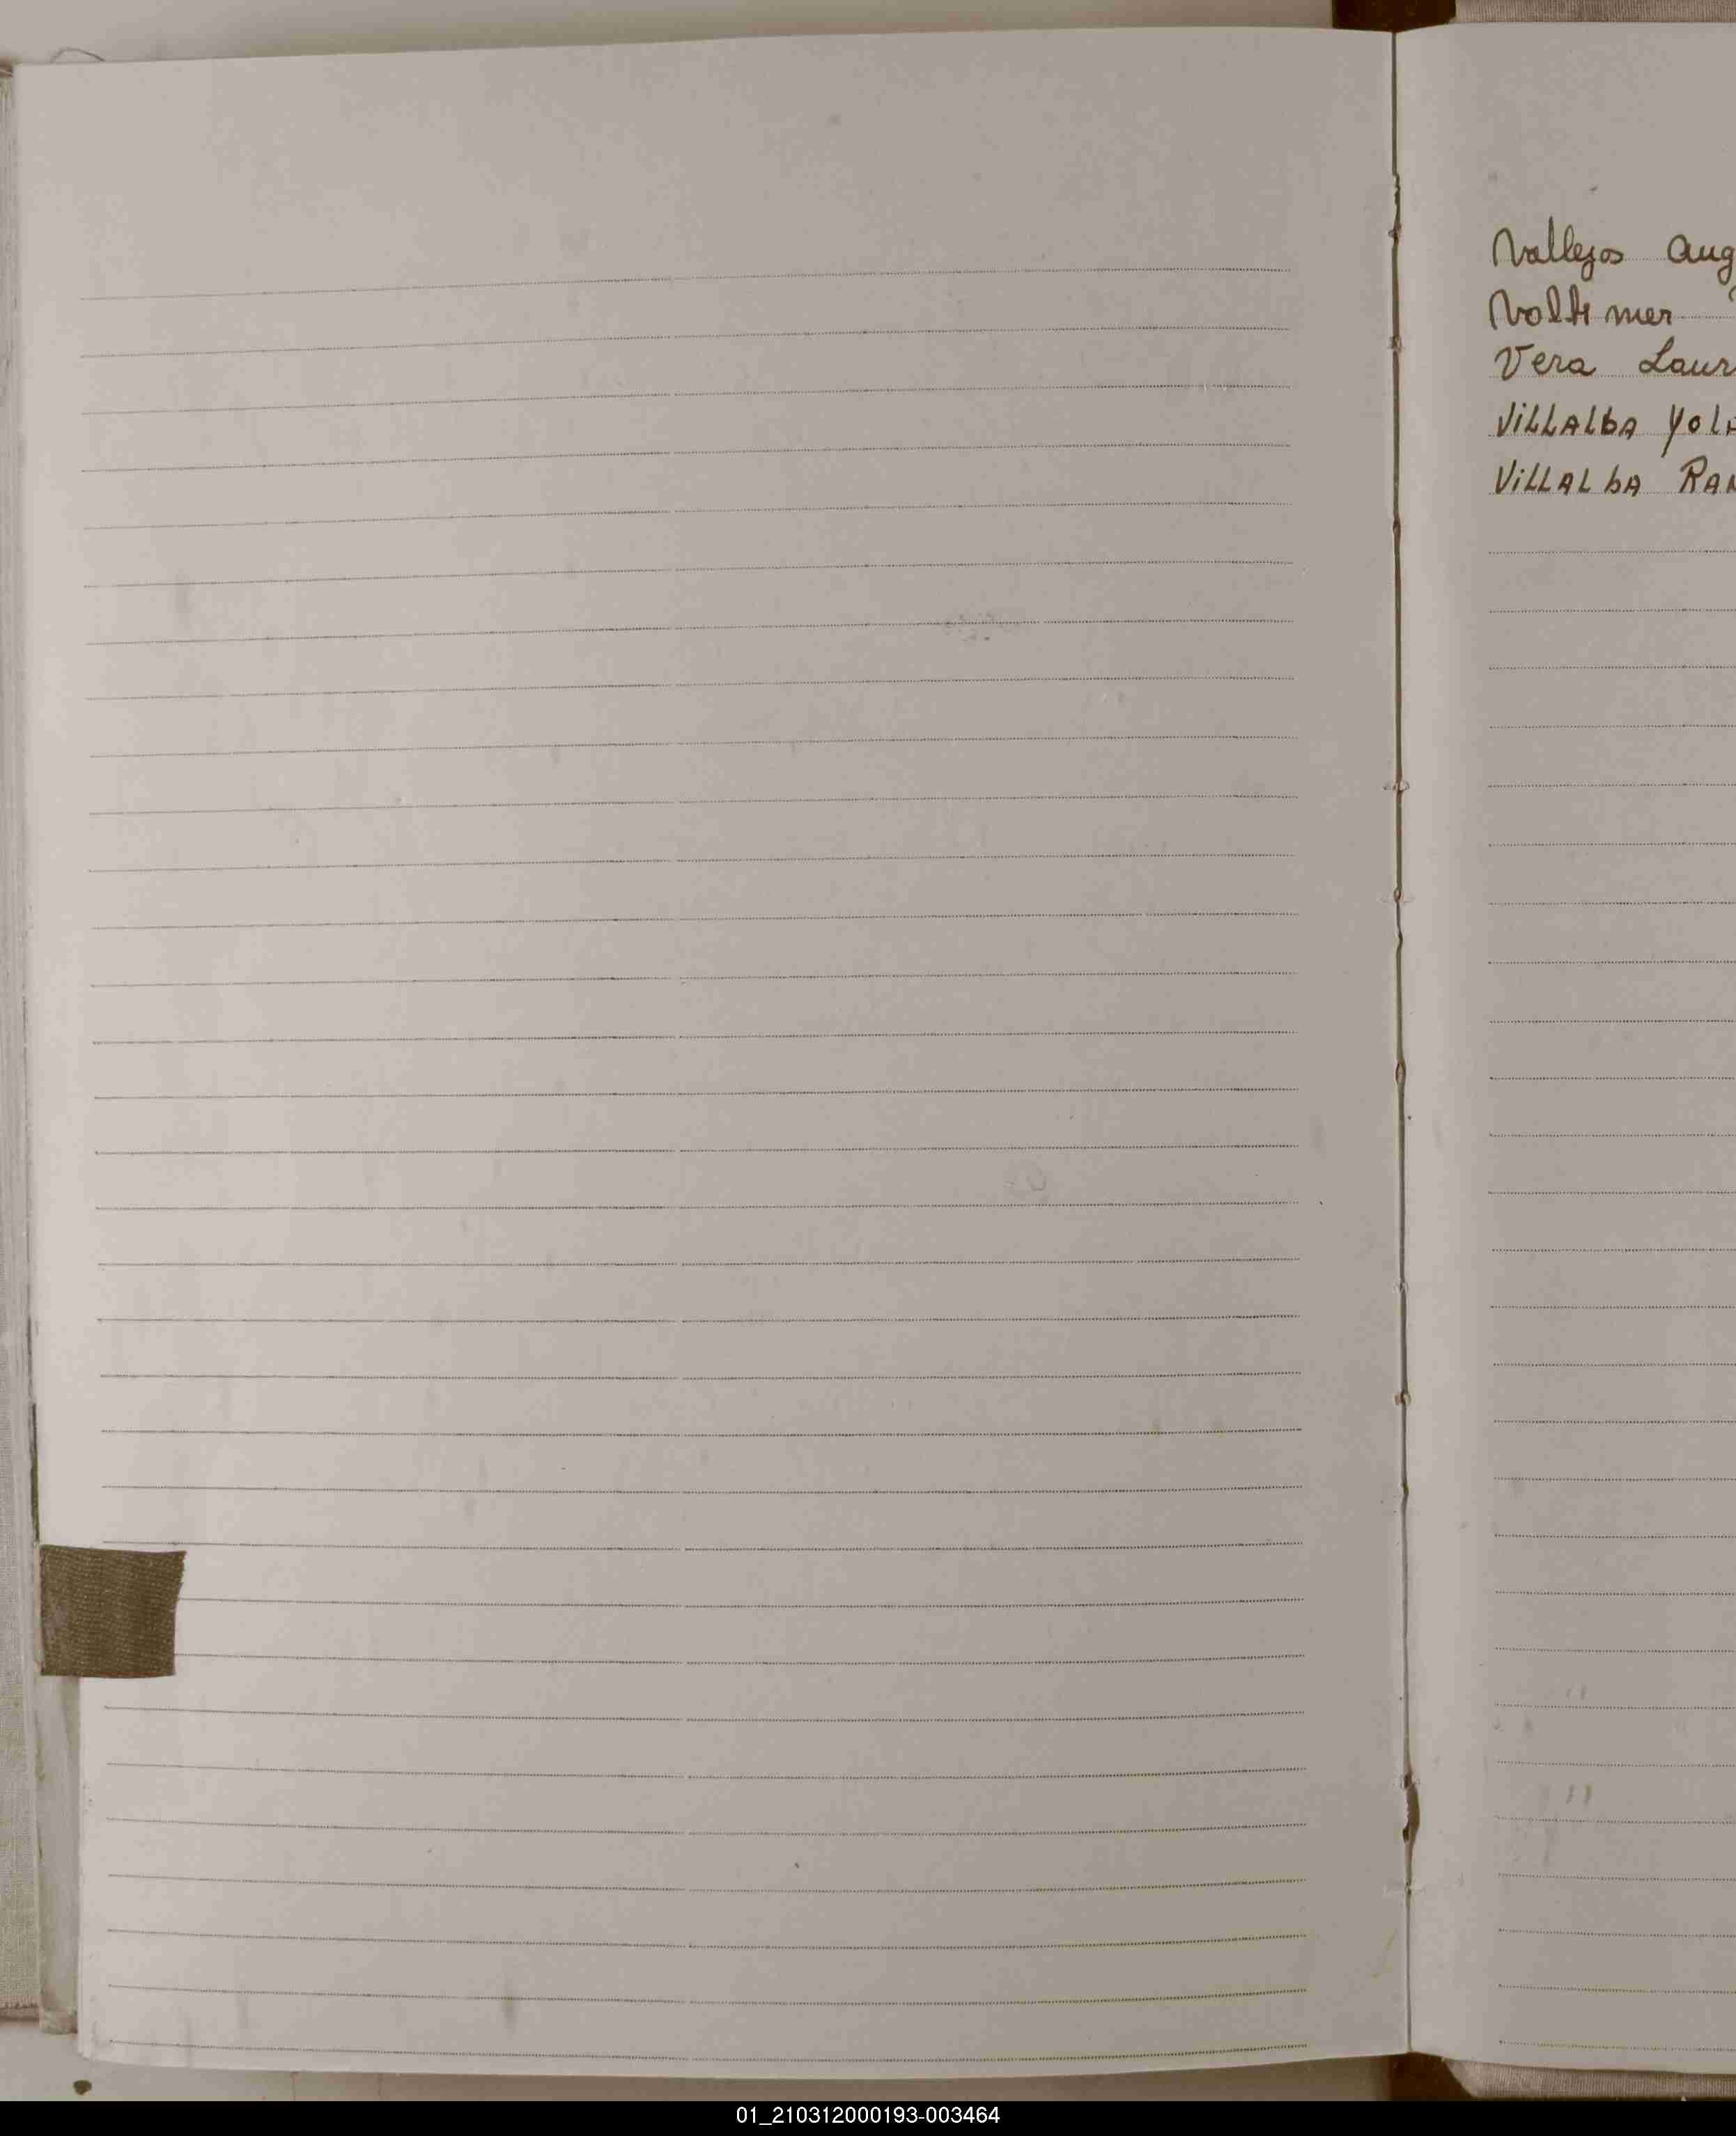 Vallejos Aug
Voltimer
Vera Laur
ViLLAlbA Yol
ViLLALbA RAM
01_210312000193-003464